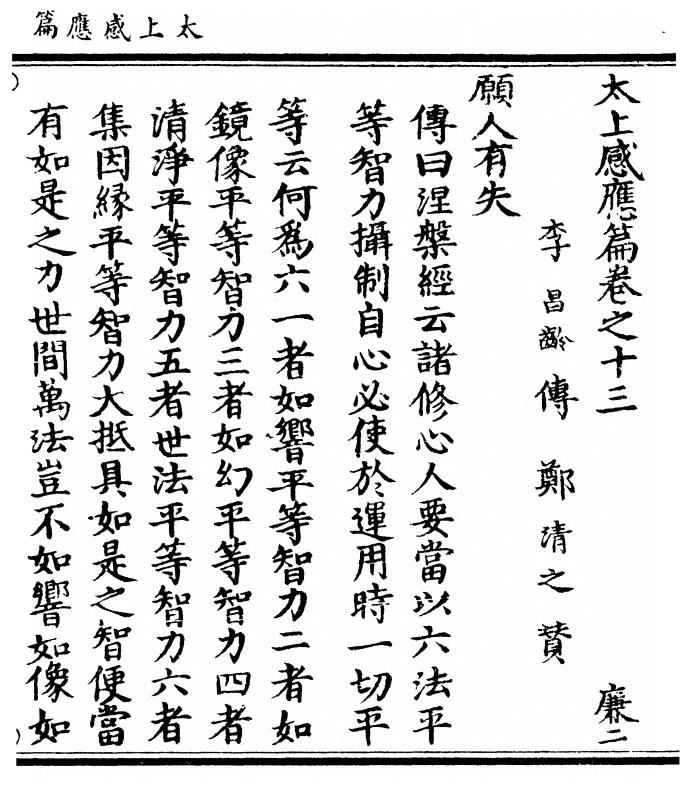 太上感應篇
太上感應篇卷之十三 廉二
李昌齡傳 鄭清之贊
願人有失
傳曰涅槃經云諸修心人要當以六法平
等智力攝制自心必使於運用時一切平
等云何爲六一者如響平等智力二者如
鏡像平等智力三者如幻平等智力四者
清淨平等智力五者世法平等智力六者
集因緣平等智力大抵具如是之智便當
有如是之力世間萬法豈不如響如像如